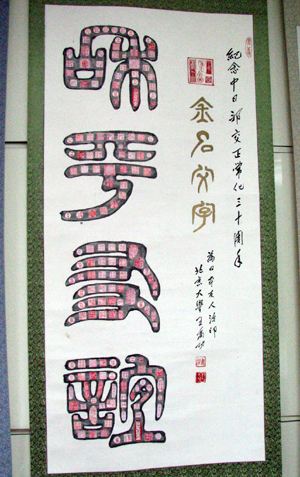 紀念中日邦交正常化三十周年
金石文字
為日本友人治印
北京大學
和平友誼